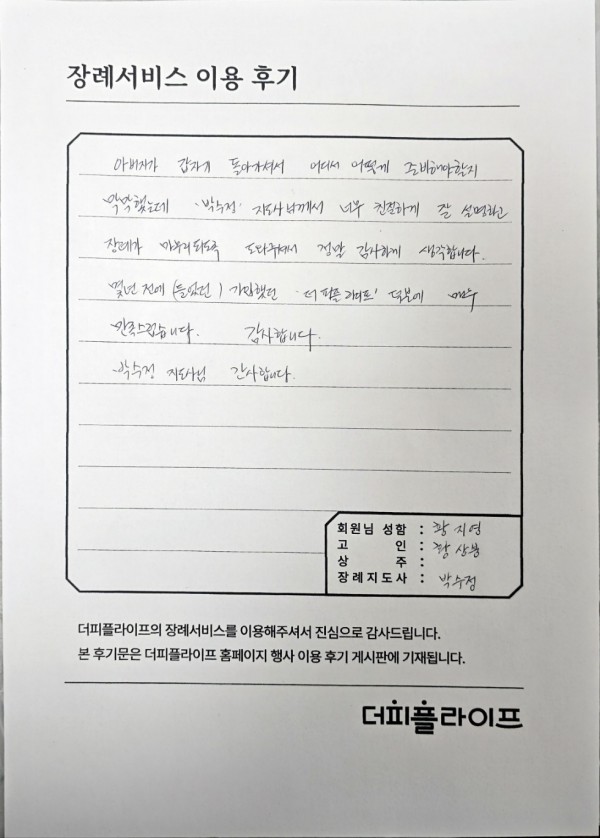 장례서비스 이용 후기
아버지가 갑자기 돌아가셔서 어디서 어떻게 준비해야할지
막막했는데 '박수정' 지도사님께서 너무 친절하게 잘 설명하고
장례가 마무리 되도록 도와주셔서 정말 감사하게 생각합니다.
몇년 전에 (들었던) 가입했던 '더 피플 라이프' 덕분에 매우
만족스럽습니다. 감사합니다.
박수정 지도사님 감사합니다.
회원님 성함 : 황지영
고 인 : 황상봉
상 주 :
장례지도사 : 박수정
더피플라이프의 장례서비스를 이용해주셔서 진심으로 감사드립니다.
본 후기문은 더피플라이프 홈페이지 행사 이용 후기 게시판에 기재됩니다.
더피플라이프